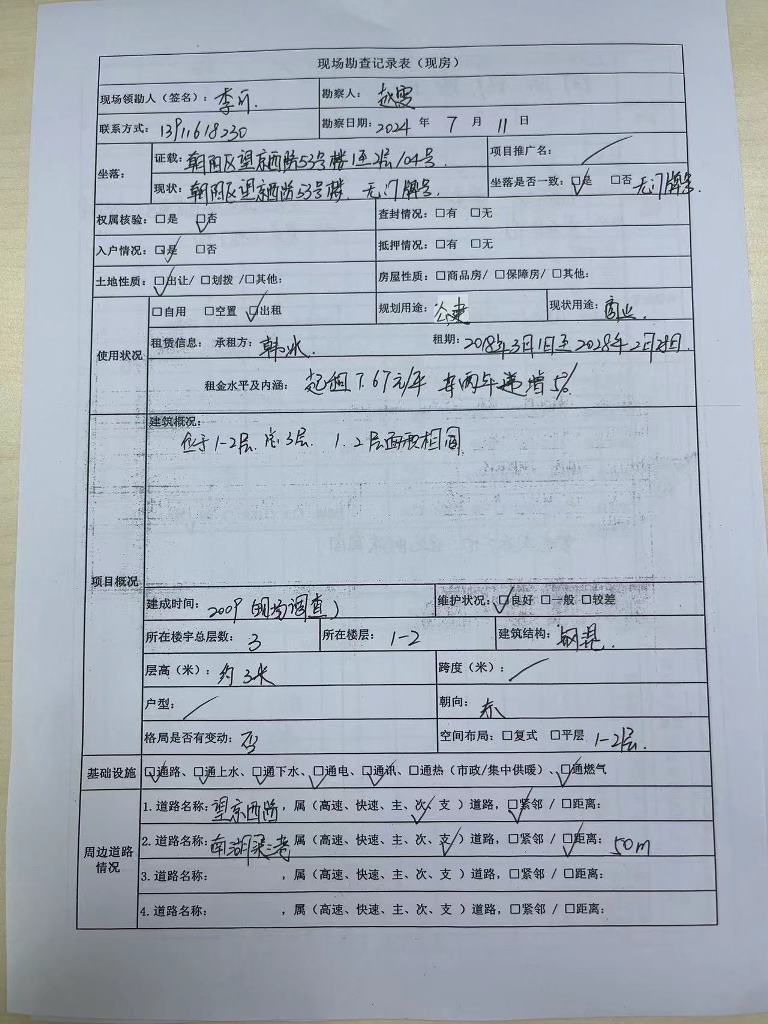 现场勘查记录表（现房）
现场领勘人（签名）： 勘察人： 赵雯
联系方式：13911618230 勘察日期：2024 年 7 月 11 日
坐落： 证载：朝阳区望京西路53号楼1至2层104号 项目推广名：
现状：朝阳区望京西路53号楼 无门牌号 坐落是否一致：☑是 □否 无门牌号
权属核验：□是 ☑否 查封情况：□有 □无
入户情况：☑是 □否 抵押情况：□有 □无
土地性质：☑出让/ □划拨 /□其他： 房屋性质：□商品房/ □保障房/ □其他：
使用状况 □自用 □空置 ☑出租 规划用途：公建 现状用途：商业
租赁信息： 承租方：韩冰 租期：2018年3月1日至2028年2月29日
租金水平及内涵： 起租7.67元/平 每两年递增5%
项目概况 建筑概况：
位于1-2层，总3层. 1.2层面积相同
建成时间：2009（现场调查） 维护状况：☑良好 □一般 □较差
所在楼宇总层数： 3 所在楼层： 1-2 建筑结构：钢混
层高（米）：约3米 跨度（米）：
户型： 朝向：东
格局是否有变动：否 空间布局：□复式 □平层 1-2层.
基础设施 ☑通路、☑通上水、☑通下水、☑通电、☑通讯、□通热（市政/集中供暖）、☑通燃气
周边道路情况 1.道路名称：望京西路，属（高速、快速、主、次✓、支 ）道路，☑紧邻 / □距离：
2.道路名称：南湖渠 属（高速、快速、主、次、支✓）道路，□紧邻 / ☑距离： 50m
3.道路名称： ，属（高速、快速、主、次、支 ）道路，□紧邻 / □距离：
4.道路名称： ，属（高速、快速、主、次、支 ）道路，□紧邻 / □距离：